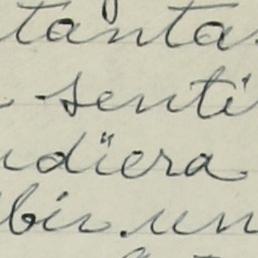 tanta
senti
udiera
bir un